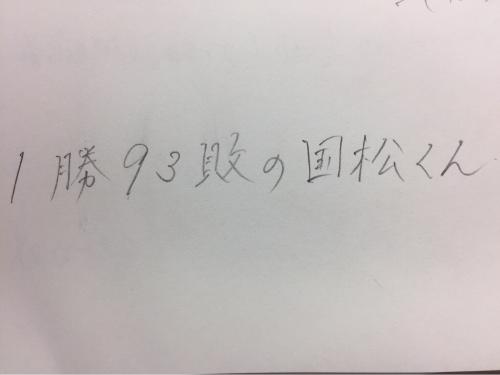 1勝93敗の国松くん